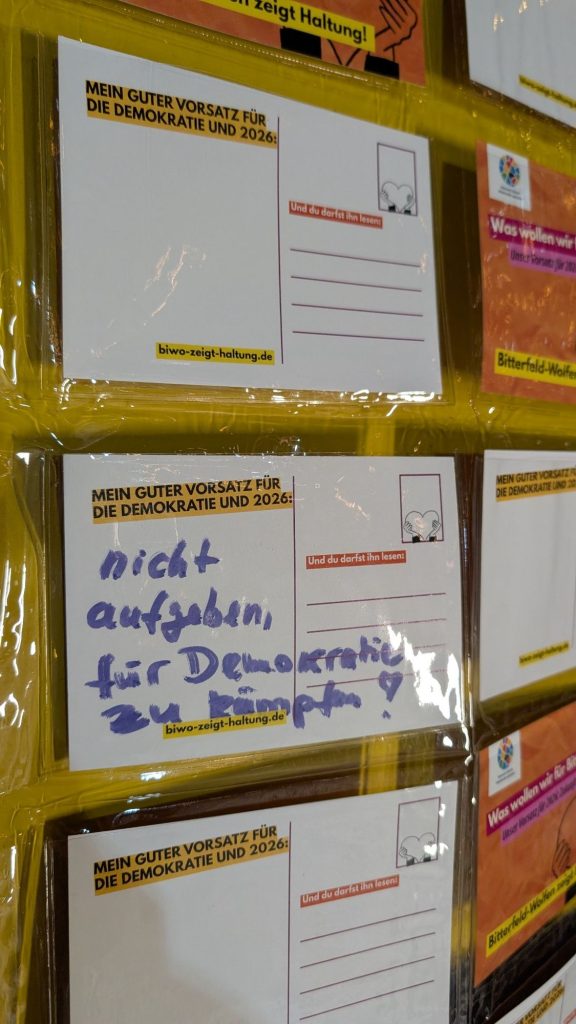 en zeigt Haltung!
MEIN GUTER VORSATZ FÜR
DIE DEMOKRATIE UND 2026:
Und du darfst ihn lesen:
biwo-zeigt-haltung.de
Was wollen wir
Unser Vorsatz für
Bitterfeld-Wolfen
MEIN GUTER VORSATZ FÜR
DIE DEMOKRATIE UND 2026:
Und du darfst ihn lesen:
nicht
aufgeben,
für Demokratie
zu kämpfen!
biwo-zeigt-haltung.de
MEIN GUTER VORSATZ FÜR
DIE DEMOKRATIE UND 2026:
biwo-zeigt-haltung.de
MEIN GUTER VORSATZ FÜR
DIE DEMOKRATIE UND 2026:
Und du darfst ihn lesen:
Was wollen wir für
Unser Vorsatz für 2026
Bitterfeld-Wolfen